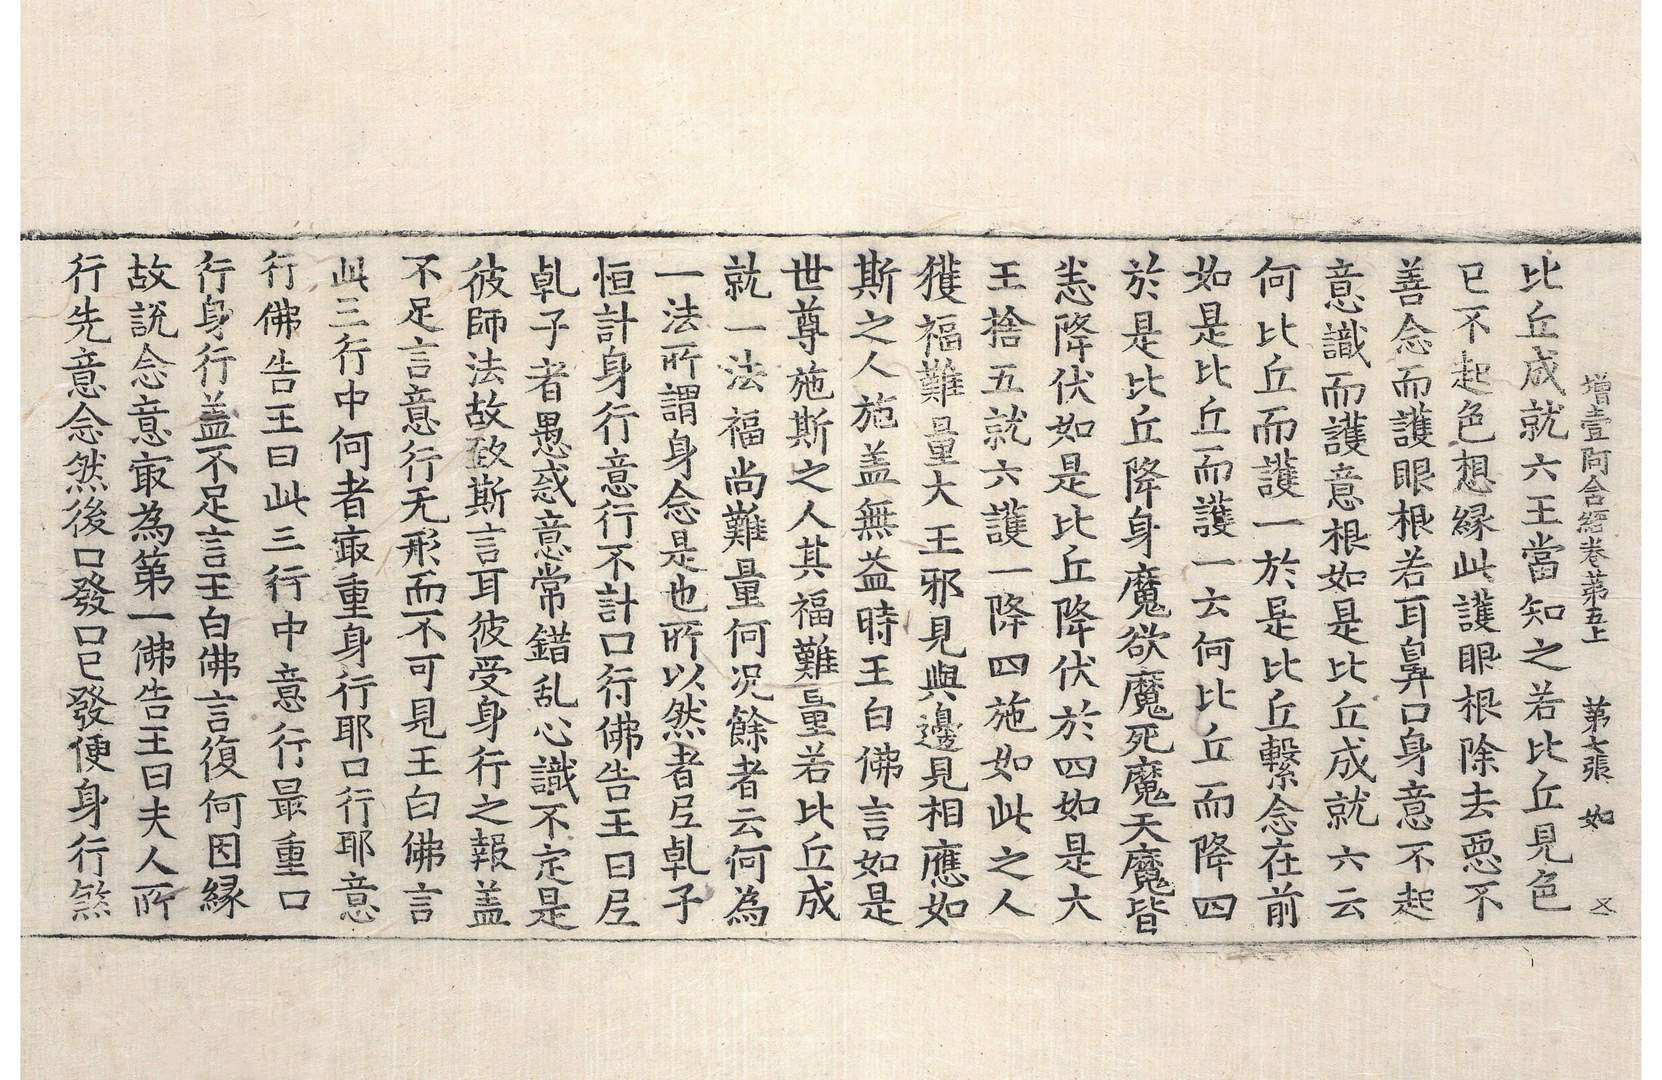 增壹阿含經卷第五上 第七張 如
比丘成就六王當知之若比丘見色
已不起色想緣此護眼根除去惡不
善念而護眼根若耳鼻口身意不起
意識而護意根如是比丘成就六云
何比丘而護一於是比丘繫念在前
如是比丘而護一云何比丘而降四
於是比丘降身魔欲魔死魔天魔皆
悉降伏如是比丘降伏於四如是大
王捨五就六護一降四施如此之人
獲福難量大王邪見與邊見相應如
斯之人施盖無益時王白佛言如是
世尊施斯之人其福難量若比丘成
就一法福尚難量何況餘者云何為
一法所謂身念是也所以然者𡰱乹子
恒計身行意行不計口行佛告王曰𡰱
乹子者愚惑意常錯乱心識不定是
彼師法故致斯言耳彼受身行之報盖
不足言意行无形而不可見王白佛言
此三行中何者㝡重身行耶口行耶意
行佛告王曰此三行中意行最重口
行身行盖不足言王白佛言復何因緣
故說念意㝡為第一佛告王曰夫人所
行先意念然後口發口已發便身行煞